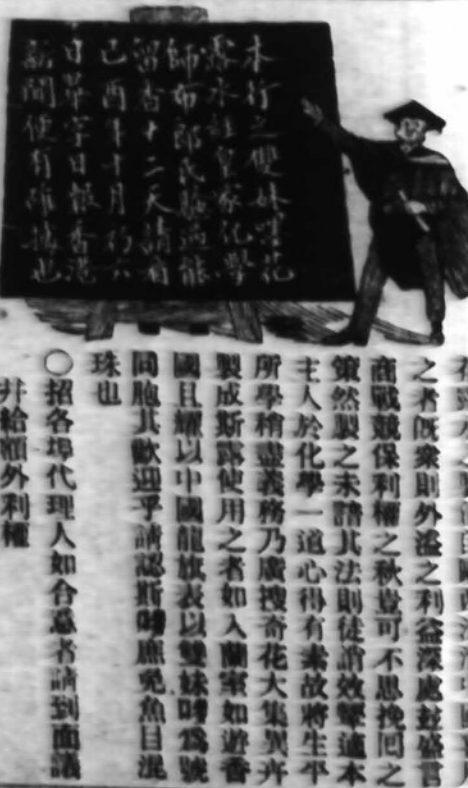 本行之雙妹嘜花
露水經皇家化學
師布郎民驗過能
留香十二天請看
己酉年十月初六
日華字日報香港
新聞便有確據也
之者既衆則外溢之利益深處玆盛言
商戰競保利權之秋豈可不思挽囘之
策然製之未諳其法則徒誚效顰遠本
主人於化學一道心得有素故將生平
所學稍盡義務乃廣搜奇花大集異卉
製成斯露使用之者如入蘭室如遊香
國且耀以中國龍旗表以雙妹嘜爲號
同胞其歡迎乎請認斯嘜庶免魚目混
珠也
○招各埠代理人如合意者請到面議
幷給額外利權